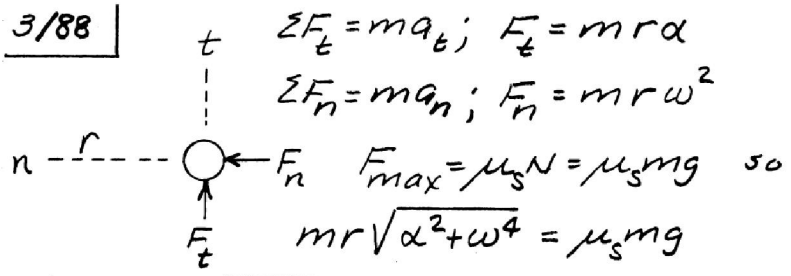 3/88
t ΣF_t = ma_t; F_t = mrα
ΣF_n = ma_n; F_n = mrω²
n r F_n F_max = μ_s N = μ_s mg so
F_t mr√(α²+ω⁴) = μ_s mg